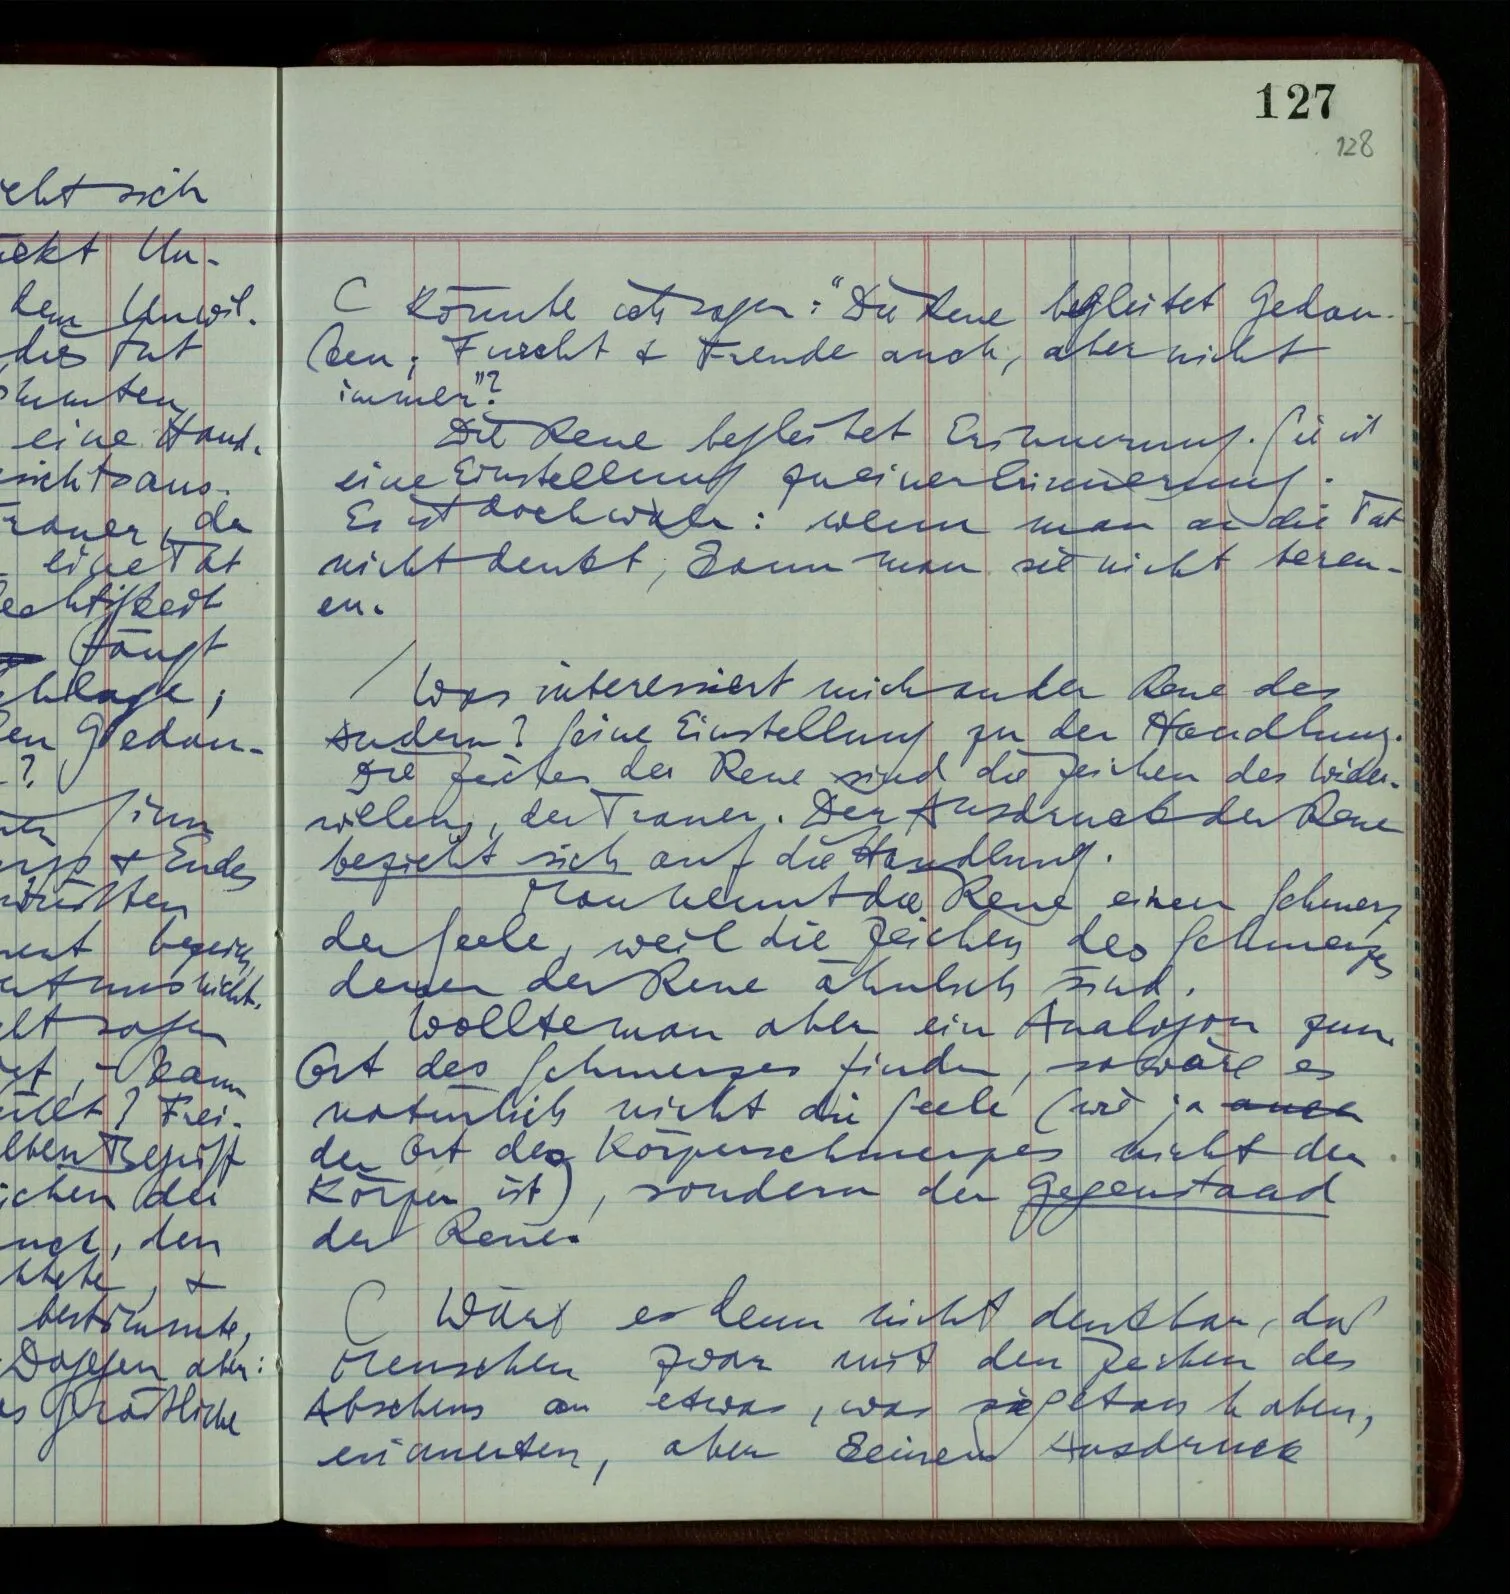 cht sich
ückt Un-
dem Unwil-
dies tut
eine Hand-
sichtsaus-
Trauer, da
eine Tat
echtigkeit
hängt
chlage;
en Gedan-
?
Sinn
& Endes
nicht.
lt sagen
kann
? Frei-
lben Begriff
ichen der
den
&
bestimmte,
Dagegen aber:
grässliche
127
128
C Könnte ich sagen: "Die Reue begleitet Gedan-
ken; Furcht & Freude auch, aber nicht
immer"?
Die Reue begleitet Erinnerung. Sie ist
eine Einstellung zu einer Erinnerung.
Es ist doch wahr: wenn man an die Tat
nicht denkt, kann man sie nicht bereu-
en.
/ Was interessiert mich an der Reue des
Andern? Seine Einstellung zu der Handlung.
Die Zeichen der Reue sind die Zeichen des Wider-
willens, der Trauer. Der Ausdruck der Reue
bezieht sich auf die Handlung.
Man nennt die Reue einen Schmerz
der Seele, weil die Zeichen des Schmerzes
denen der Reue ähnlich sind.
Wollte man aber ein Analogon zum
Ort des Schmerzes finden, so wäre es
natürlich nicht die Seele (wie ja auch
der Ort des Körperschmerzes nicht der
Körper ist), sondern der Gegenstand
der Reue.
C Wäre es denn nicht denkbar, daß
Menschen zwar mit den Zeichen des
Abscheus an etwas, was sie getan haben,
erinnerten, aber keinen Ausdruck